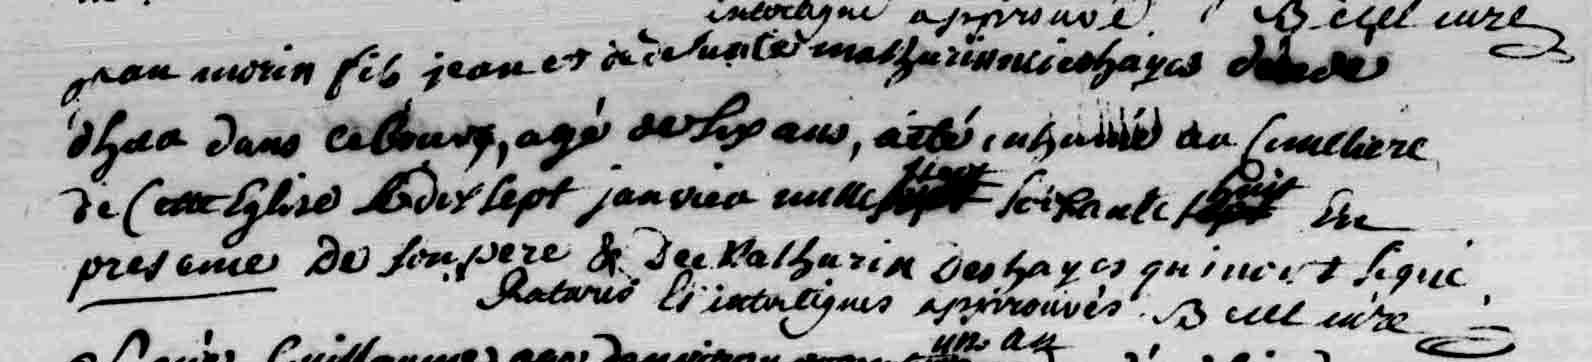 interligne approuvé. B curé
jean morin fils jean et de defunte mathurinne deshayes décédé
d'hier dans ce bourg, agé de six ans, a été inhumé au Cimetiere
de Cette Eglise le dix sept janvier mille sept soixante huit En
presence de son pere & De Mathurin Deshayes qui n'ont signé
Raturés Et interlignes approuvés. B curé
un an
Guillaume agé d'environ